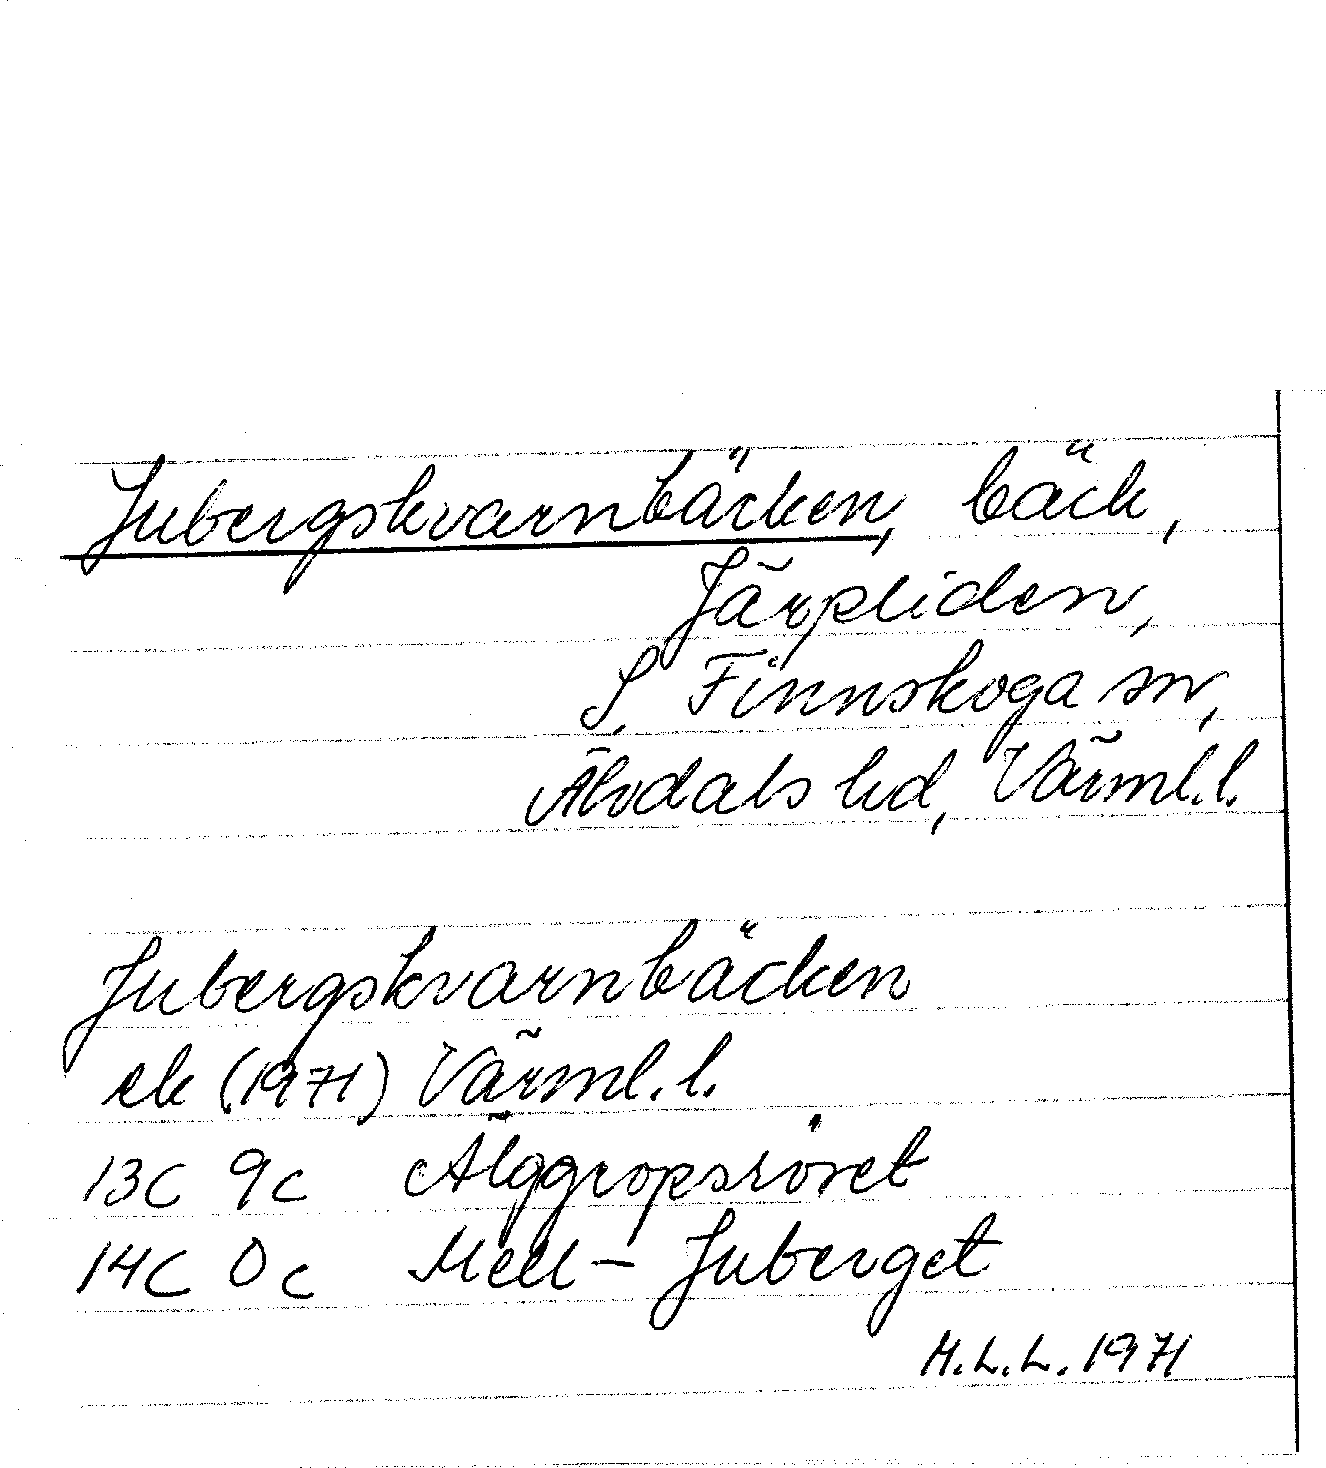 Jubergskvarnbäcken, bäck,
Järpliden,
S. Finnskoga sn,
Älvdals hd, Värml. l.
Jubergskvarnbäcken
ek (1971) Värml. l.
13C 9c Älggropsröset
14C 0c Mell-Juberget
H.L.L. 1971